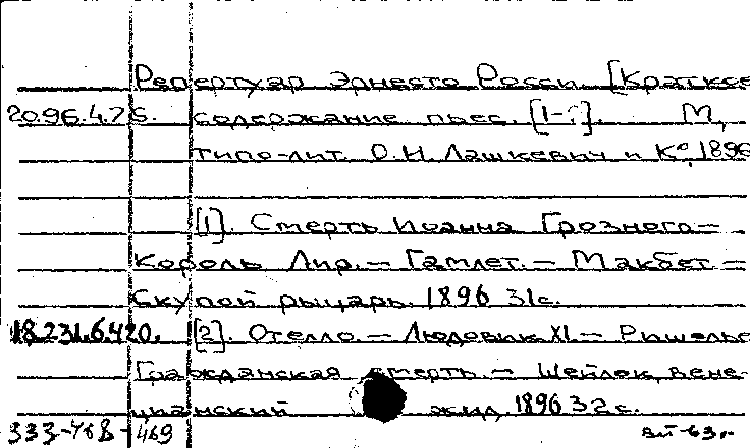 Репертуар Эрнесто Росси. [Краткое
20.96.4.75. содержание пьес. [1-]. М,
типо-лит. О.Н. Лашкевич и Ко, 1896
[1]. Смерть Иоанна Грознаго –
Король Лир. – Гамлет. – Макбет –
Скупой рыцарь. 1896 31с.
18.231.6.420. [2]. Отелло. – Людовик XI – Ришелье
Гражданская смерть. – Шейлок, вене-
цианский жид. 1896 32с.
333-468-469